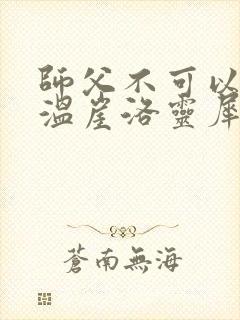 師父不可以
溫崖洛靈犀
蒼南無海